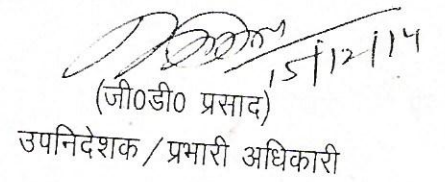 15/12/14
(जी0डी0 प्रसाद)
उपनिदेशक / प्रभारी अधिकारी